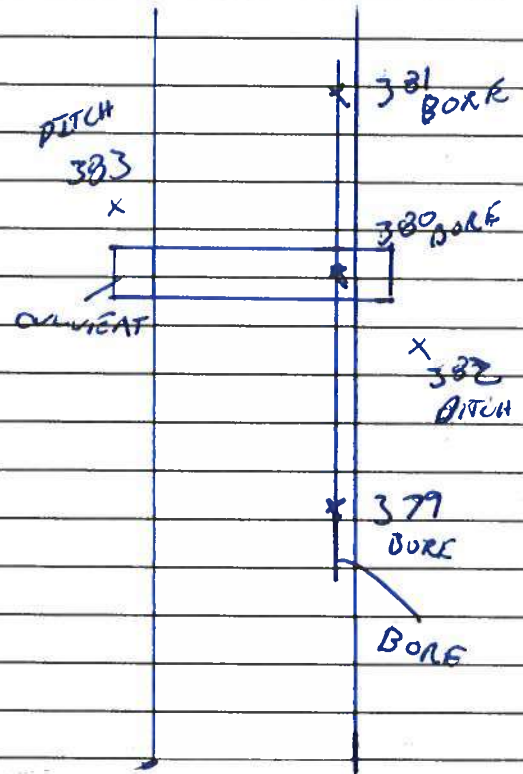 381
BORE
DITCH
383
380 BORE
CULVERT
382
DITCH
379
BORE
BORE